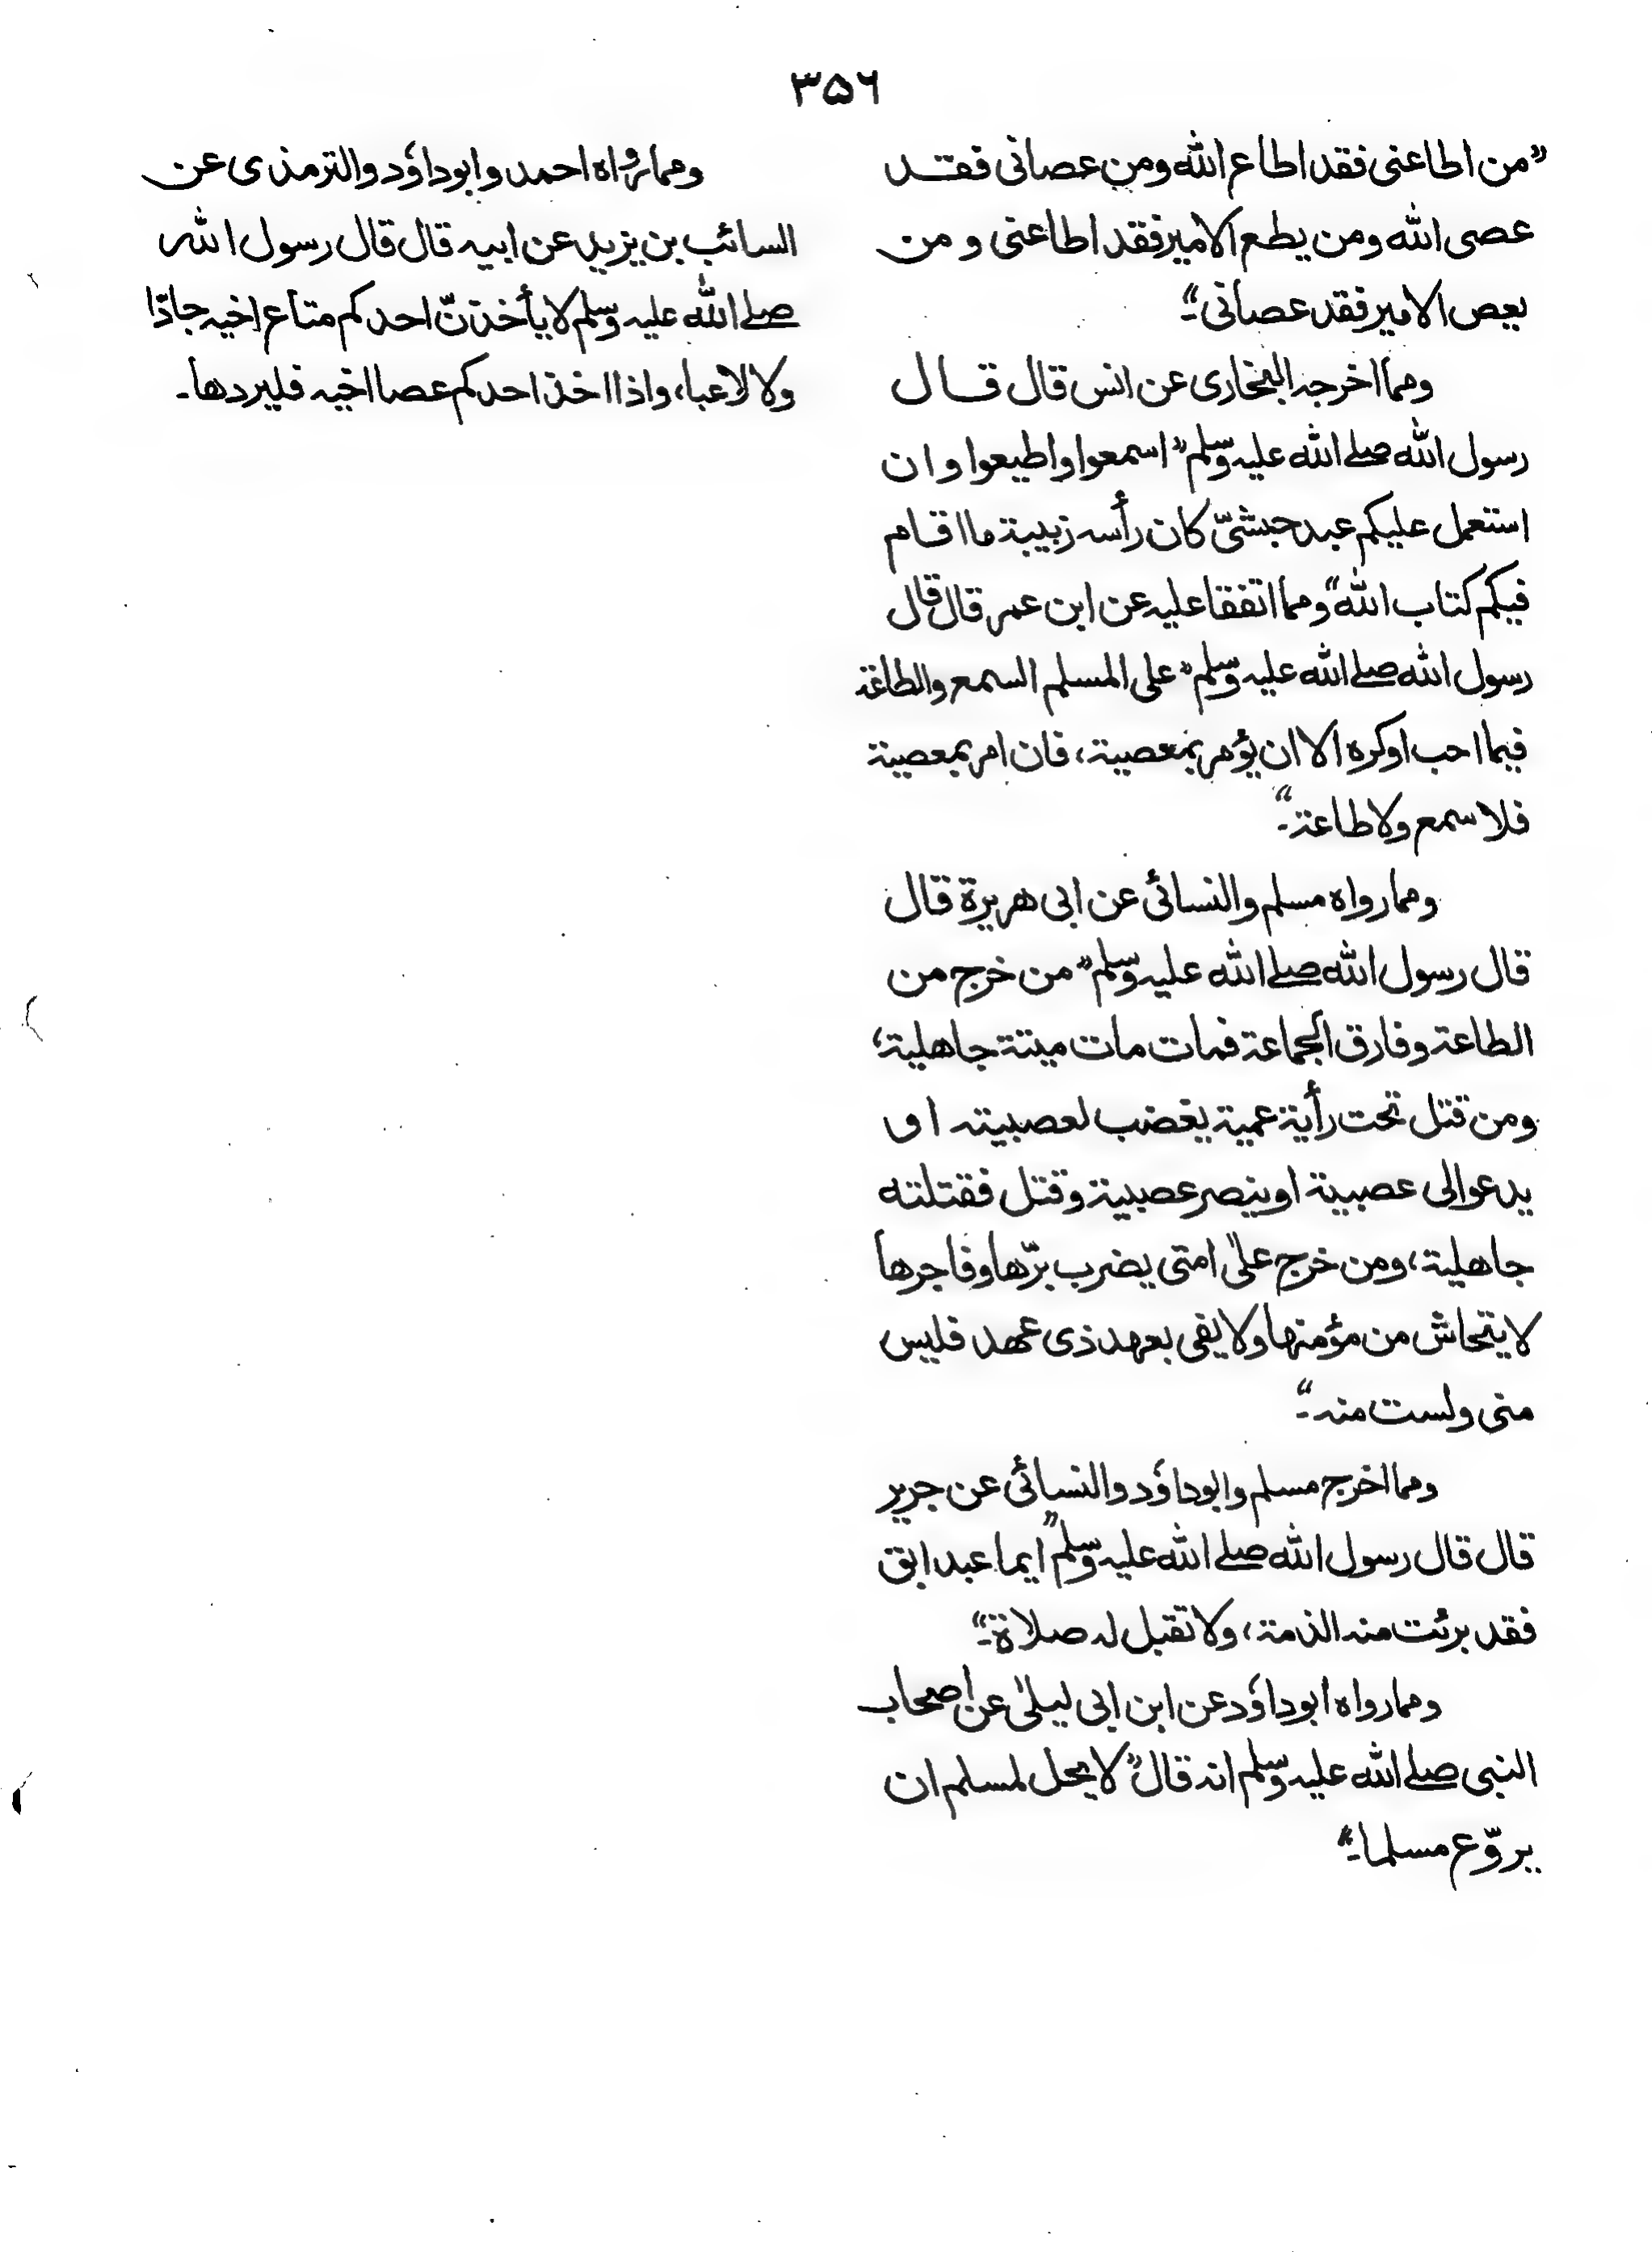 ۳۵۶
”من اطاعنی فقد اطاع الله ومن عصانی فقد
عصی الله ومن يطع الامير فقد اطاعنی و من
يعص الامير فقد عصانی“۔
ومما اخرجه البخاری عن انس قال قال
رسول الله صلے الله عليه وسلم ”اسمعوا واطيعوا وان
استعمل عليكم عبد حبشیّ كان رأسه زبيبة ما اقام
فيكم كتاب الله“ ومما اتفقا عليه عن ابن عمر قال قال
رسول الله صلے الله عليه وسلم ”على المسلم السمع والطاعة
فيما احب او كره الا ان يؤمر بمعصية، فان امر بمعصية
فلا سمع ولا طاعة“۔
ومما رواه مسلم والنسائی عن ابی هريرة قال
قال رسول الله صلے الله عليه وسلم ”من خرج من
الطاعة وفارق الجماعة فمات مات ميتة جاهلية،
ومن قتل تحت رأية عمية يغضب لعصبيته او
يدعوالی عصبية او ينصر عصبية وقتل فقتلته
جاهلية، ومن خرج علٰى امتی يضرب برّها وفاجرها
لا يتحاش من مؤمنها ولا يفی بعهد ذی عهد فليس
منی ولست منه“۔
ومما اخرج مسلم وابوداوٗد والنسائی عن جرير
قال قال رسول الله صلے الله عليه وسلم ”ايما عبد ابق
فقد برئت منه الذمة، ولا تقبل له صلاة“۔
ومما رواه ابوداوٗد عن ابن ابی ليلیٰ عن اصحاب
النبی صلے الله عليه وسلم انه قال ”لا يحل لمسلم ان
يروّع مسلما“۔
ومما رواه احمد وابوداوٗد والترمذی عن
السائب بن يزيد عن ابيه قال قال رسول الله
صلے الله عليه وسلم لا يأخذنّ احدكم متاع اخيه جادّا
ولا لاعبا، واذا اخذ احدكم عصا اخيه فليردها۔